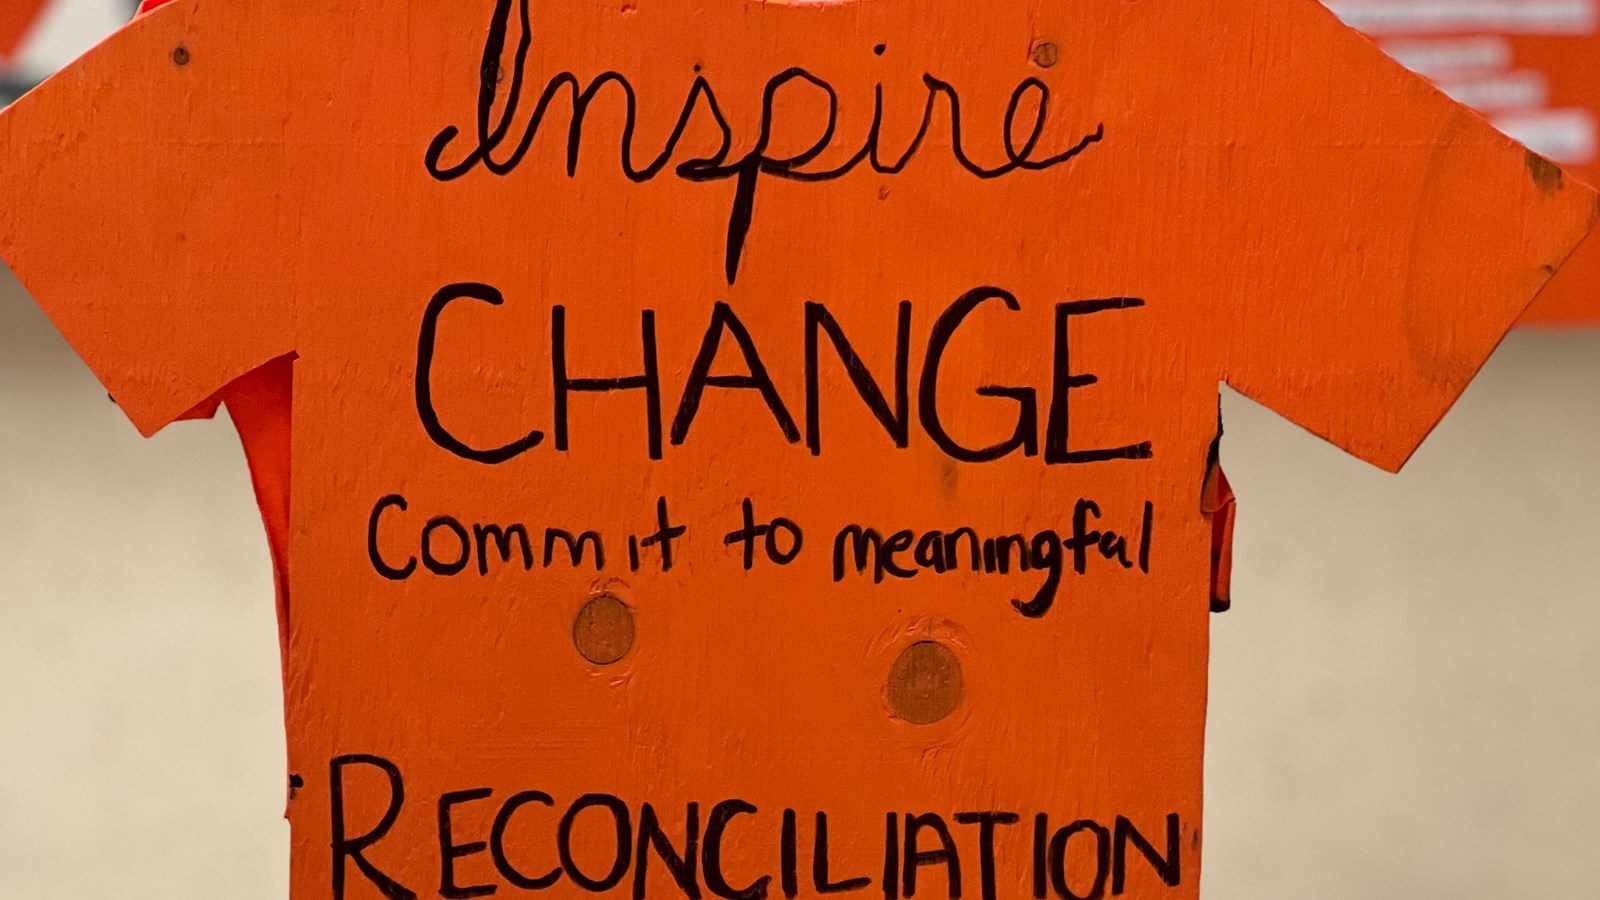 Inspire
CHANGE
Commit to meaningful
RECONCILIATION